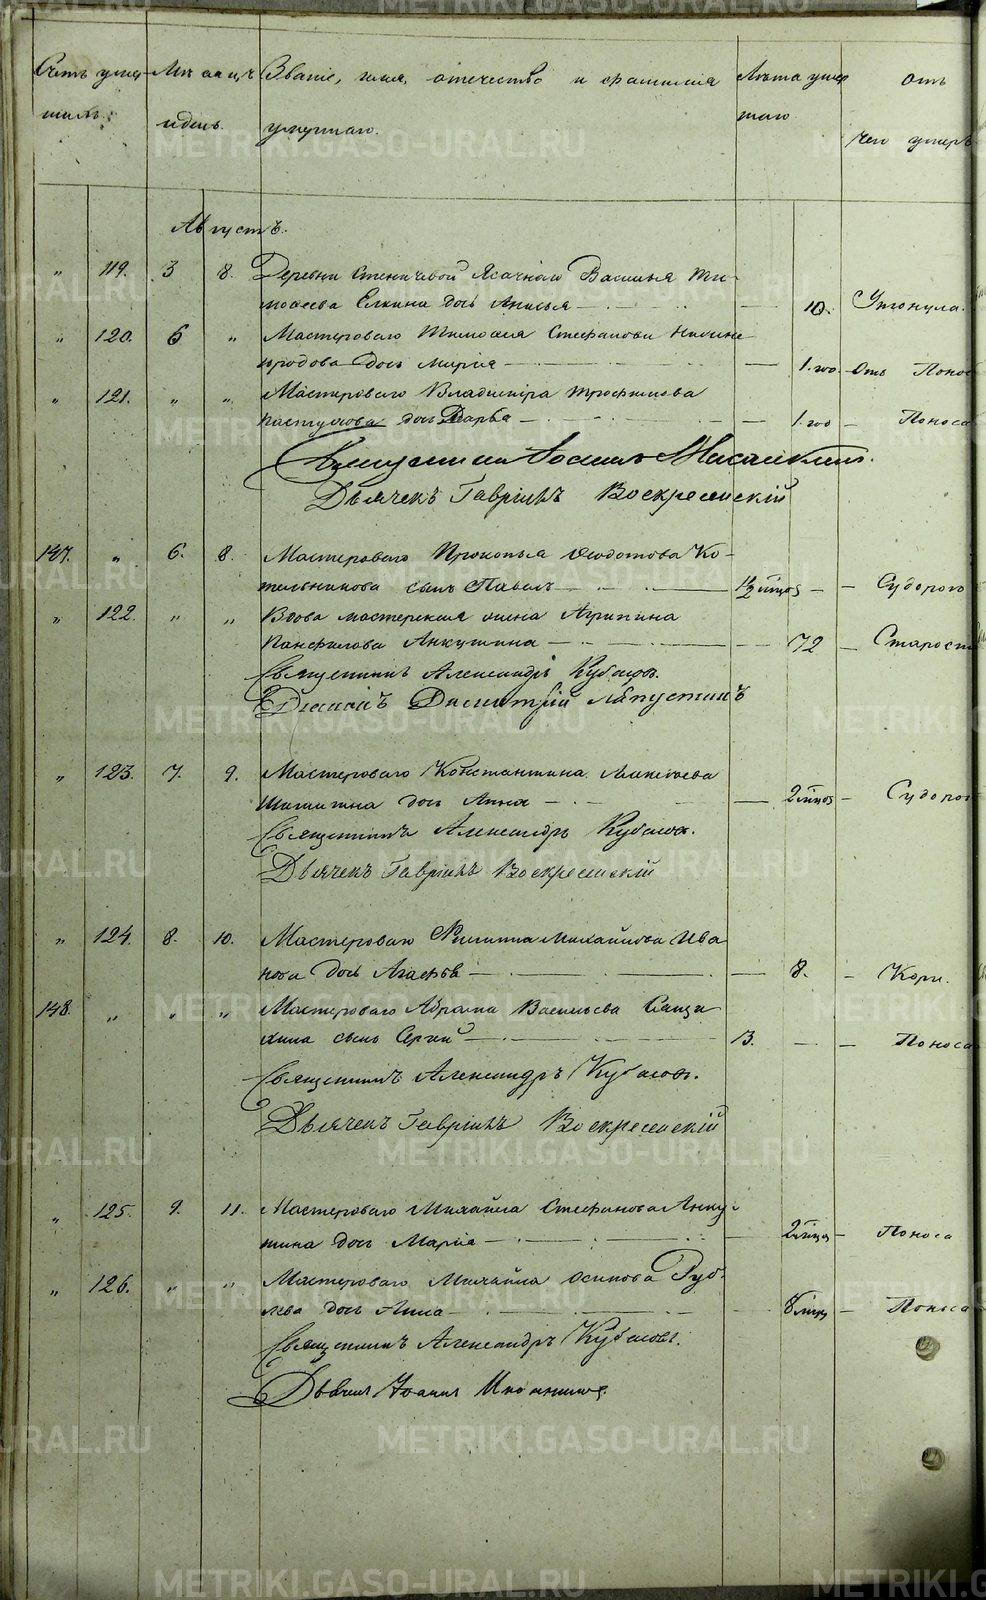 Счетъ умер- Мѣсяцъ Званіе, имя, отечество и фамилія Лѣта умер Отъ
шихъ. и день. умершаго. шаго чего умеръ
Августъ.
„ 119. 3 8. Деревни Ясачнаго Василья Ти-
моѳеева Елкина дочь Анисья — 10. Утонула.
„ 120. 6 „ Мастероваго Тимоѳея Стефанова
дочь Марія — 1. год. Отъ Понос
„ 121. „ „ Мастероваго Владиміра Трофимова
Пастухова дочь Дарья — 1. год — Поноса
Священникъ
Дьячекъ Гавріилъ Воскресенскій
147. „ 6. 8. Мастероваго Прокопья Ѳедотова Ко-
тельникова сынъ Павелъ — — Судорог
„ 122. „ „ Вдова мастерская жена Агрипина
Панфилова Анкушина — 72 — Старост
Священникъ Александръ Кубасовъ.
Діаконъ Димитрій Ляпустинъ
„ 123. 7. 9. Мастероваго Константина
дочь Анна — 2 мѣсяц — Судорог
Священникъ Александръ Кубасовъ.
Дьячекъ Гавріилъ Воскресенскій
„ 124. 8. 10. Мастероваго Филиппа Михайлова Ива
нова дочь Агафья — 8. — Кори.
148. „ „ „ Мастероваго Абрама Васильева
сынъ Сергей — 3. — Поноса
Священникъ Александръ Кубасовъ.
Дьячекъ Гавріилъ Воскресенскій
„ 125. 9. 11. Мастероваго Михайла Стефанова Анку-
шина дочь Марія — 2 мѣсяц — Поноса
„ 126. „ „ Мастероваго Михайла Осипова Руб-
лева дочь Анна — 8 мѣсяц — Поноса
Священникъ Александръ Кубасовъ.
Дьячекъ Іоаннъ
METRIKI.GASO-URAL.RU